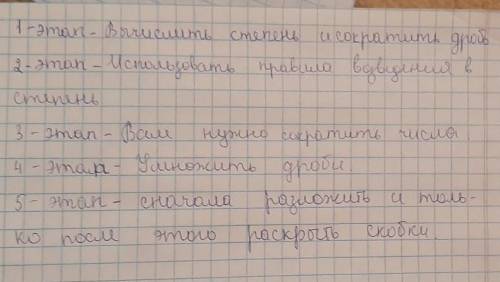 1-этап-Вычислить степень и сократить дробь
2-этап-Использовать правила вдвидения в
степень
3-этап-Вам нужно сократить числа.
4-этап-Умножить дроби.
5-этап-сначала разложить и толь-
ко после этого раскрыть скобки.